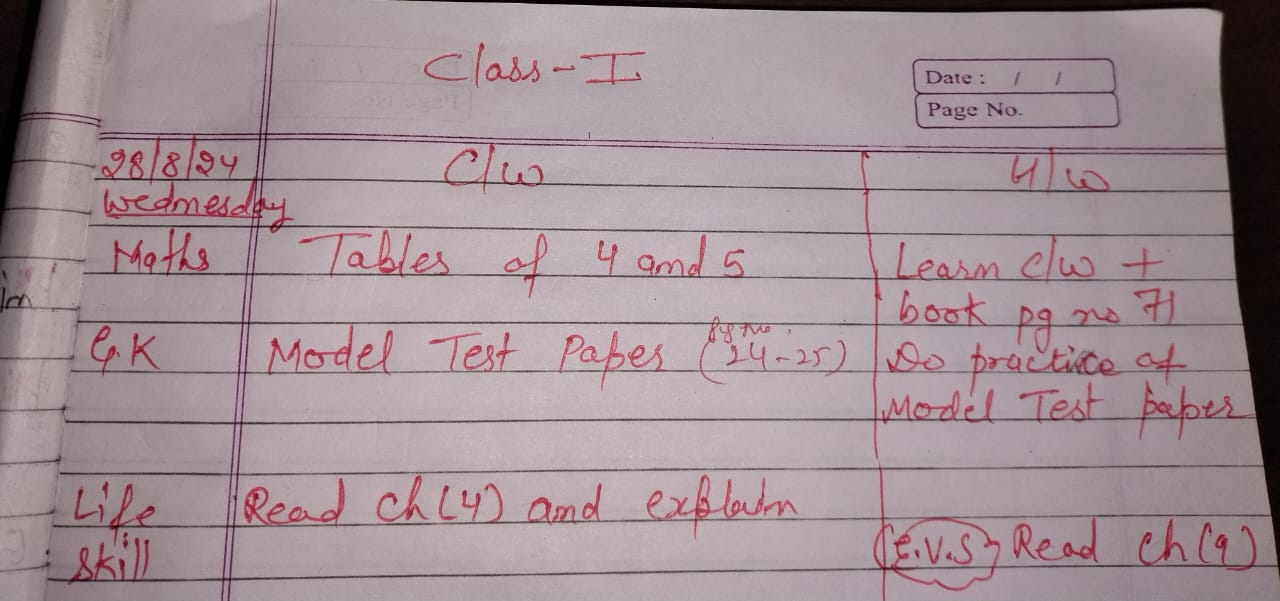 Class-I
Date : / /
Page No.
28/8/24 C/w H/w
Wednesday
Maths Tables of 4 and 5 Learn c/w +
book pg no 71
G.K Model Test Paper (pg no. 24-25) Do practice of
Model Test paper
Life Read ch (4) and explain
Skill (E.V.S) Read ch (9)